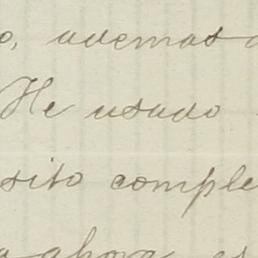 o, ademas d
He usado
sito comple
ahora es